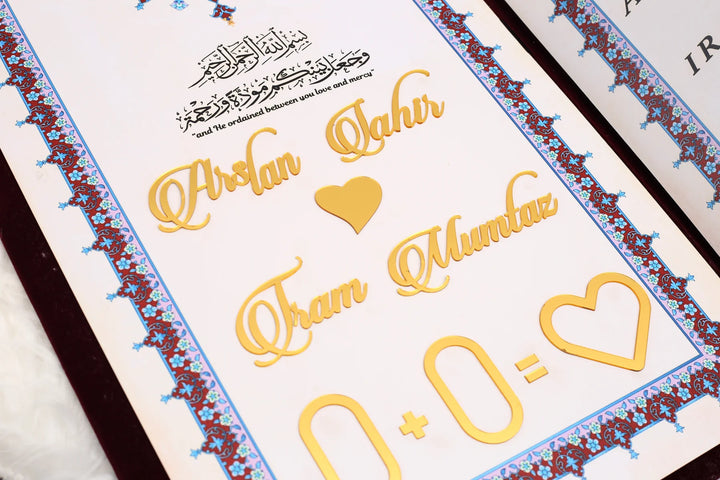 بسم الله الرحمن الرحيم
وجعل بينكم مودة ورحمة
"and He ordained between you love and mercy"
Arslan Tahir
Iram Mumtaz
0 + 0 =
A
IR